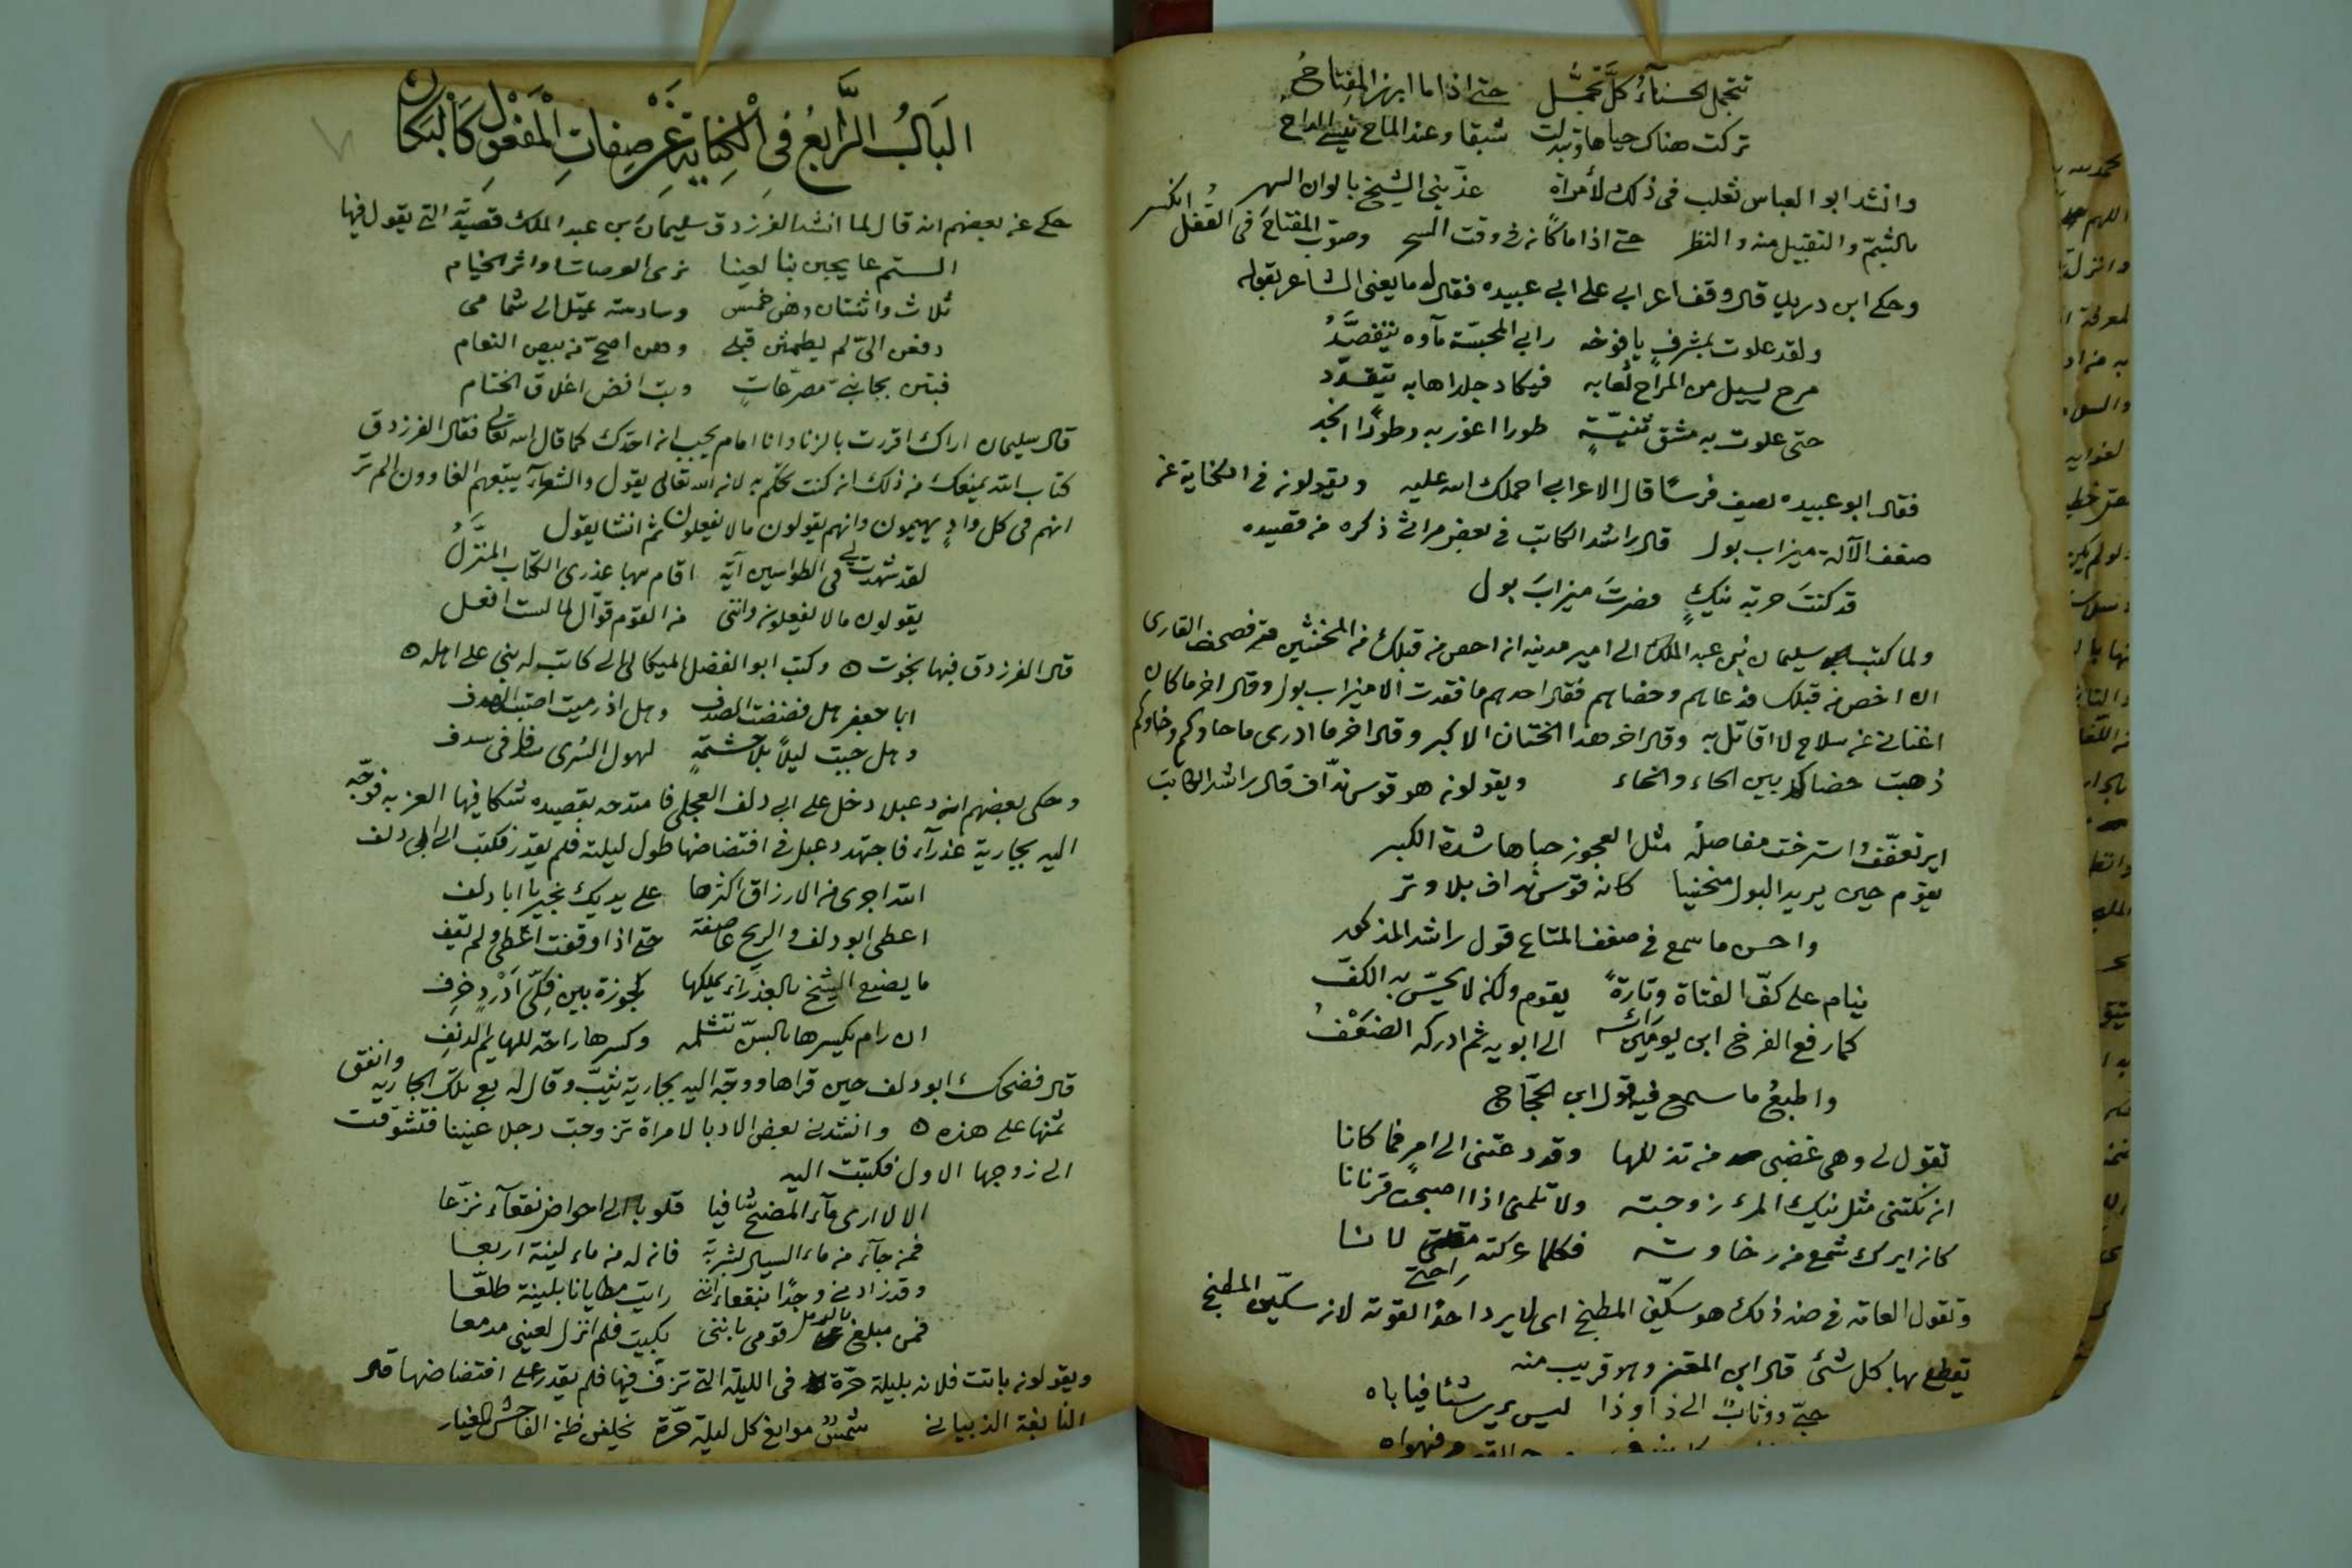 تتجمل الحسناء كل تجمل حتى اذا ما ابرز المفتاح
تركت هناك حياها وتبدلت شبقا وعند الماح تنسى المداح
وانشد ابو العباس ثعلب فى ذلك لامرأة عذّبنى الشيخ بالوان السهر
بالشمّ والتقبيل منه والنظر حتى اذا ما كان فى وقت السحر وصوّب المفتاح فى القفل انكسر
وحكى ابن دريد قال وقف اعرابى على ابى عبيده فقال له ما يعنى الشاعر بقوله
ولقد علوت بمشرف يافوخه رابى المجسّة مآوه يتفصّد
مرح يسيل من المراح لعابه فيكاد جلد اهابه يتقدّد
حتى علوت به مشق ثنيّةٍ طورا اغور به وطورًا انجد
فقال ابو عبيده يصف فرسًا قال الاعرابى احملك الله عليه ويقولون فى الكناية عن
ضعف الآلة ميزاب بول قال راشد الكاتب فى بعض مراثى ذكره من قصيده
قد كنتَ حربة نيكٍ فصرتَ ميزابَ بول
ولما كتب سليمان بن عبد الملك الى امير مدينه ان احص من قبلك من المخنثين فصحف القارى
ان اخص من قبلك فدعاهم وخصاهم فقال احدهم ما فقدت الا ميزاب بول وقال اخر ما كان
اغنانى عن سلاح لا اقاتل به وقال اخر هذا الختان الاكبر وقال اخر ما ادرى ما حاوكم وخاوكم
ذهبت خصاكم بين الحاء والخاء ويقولون هو قوس ندّاف قال راشد الكاتب
اير تعفّف واسترخت مفاصله مثل العجوز حباها شدة الكبر
يقوم حين يريد البول منحنيا كانه قوس نداف بلا وتر
واحسن ما سمع فى ضعف المتاع قول راشد المذكور
ينام على كفّ الفتاة وتارةً يقوم ولكن لا يحسّ به الكفّ
كما رفع الفرخ ابن يومين رأسه الى ابويه ثم ادركه الضعفُ
واطبع ما سمع فيه قول ابن الحجّاج
تقول لى وهى غضبى من تذللها وقد دعتنى الى امر فما كانا
ان نكتنى مثل نيك المرء زوجته ولا تلمنى اذا اصبحت قرنانا
كان ايرك شمع من رخاوته فكلما عركته راحتى لانا
وتقول العامه فى ضد ذلك هو سكّين المطبخ اى لا يرد احدًا لقوته لان سكّين المطبخ
يقطع بها كل شئ قال ابن المعتز وهو قريب منه
حبّ ووثابٌ الى ذا وذا ليس يرى شيئا فياباه
الباب الرابع فى الكناية عن صفات المفعول كالبكارة
حكى عن بعضهم انه قال لما انشد الفرزدق سليمان بن عبد الملك قصيدته التى يقول فيها
الستم عايجين بنا لعينا نرى العرصات او اثر الخيام
ثلاث واثنتان وهن خمس وسادسة تميل الى شمامى
دفعن الىّ لم يطمثن قبلى وهن اصحّ من بيض النعام
فبتن بجانبىّ مصرّعاتٍ وبت افض اغلاق الختام
قال سليمان اراك اقررت بالزنا وانا امام يجب ان احدّك كما قال الله تعالى فقال الفرزدق
كتاب الله يمنعك من ذلك ان كنت تحكم به لان الله تعالى يقول والشعرآء يتبعهم الغاوون الم تر
انهم فى كل وادٍ يهيمون وانهم يقولون ما لا يفعلون ثم انشا يقول
لقد شهدت لى فى الطواسين آية اقام بها عذرى الكتاب المنزّلُ
يقولون ما لا يفعلون واننى من القوم قوّال لما لست افعل
قال الفرزدق فبها نجوت ه وكتب ابو الفضل الميكالى الى كاتب له بنى على اهله ه
ابا جعفر هل فضضت الصدف وهل اذ رميت اصبت الهدف
وهل جبت ليلاً بلا حشمةٍ لهول السُرى سدفا فى سدف
وحكى بعضهم ان دعبل دخل على ابى دلف العجلى فامتدحه بقصيده شكا فيها العزبه فوجّه
اليه بجارية عذرآء فاجتهد دعبل فى افتضاضها طول ليلته فلم يقدر فكتب الى ابى دلف
الله اجرى من الارزاق اكثرها على يديك بخير يا ابا دلف
اعطى ابو دلف والريح عاصفة حتى اذا وقفت اعطى ولم يقف
ما يصنع الشيخ بالعذرآء يملكها كجوزة بين فكّى ادردٍ خرِف
ان رام يكسرها بالسنّ تثلمه وكسرها راحة للهايم الدنف
قال فضحك ابو دلف حين قراها ووجّه اليه بجارية ثيّب وقال له بع تلك الجاريه وانفق
ثمنها على هذه ه وانشدنى بعض الادبا لامراة تزوجت رجلا عنينا فتشوقت
الى زوجها الاول فكتبت اليه
الا لا ارى مآء المضيح شافيا قلوبا الى احواض نقعآء نزّعا
فمن جآء من ماء السيال بشربة فان له من ماء لينة اربعا
وقد زادنى وجدًا بنقعاء اننى رايت مطايانا بلينة طلعّا
فمن مبلغ بالرمل قومى باننى بكيت فلم اترك لعينى مدمعا
ويقولون باتت فلانه بليلة حرّة فى الليلة التى تزف فيها فلم يقدر على افتضاضها قال
النابغة الذبيانى شُمسٌ موانع كل ليلة حرّة يخلفن ظن الفاحش المغيار